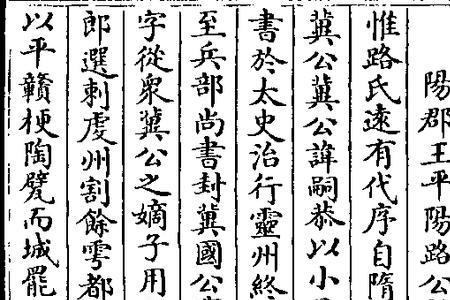 陽郡王平陽路公
惟路氏遠有代序自隋
冀公冀公諱嗣恭以小
書於太史治行靈州終
至兵部尚書封冀國公
字從衆冀公之嫡子用
郎選刺虔州割餘雩都
以平贛梗陶甓而城罷